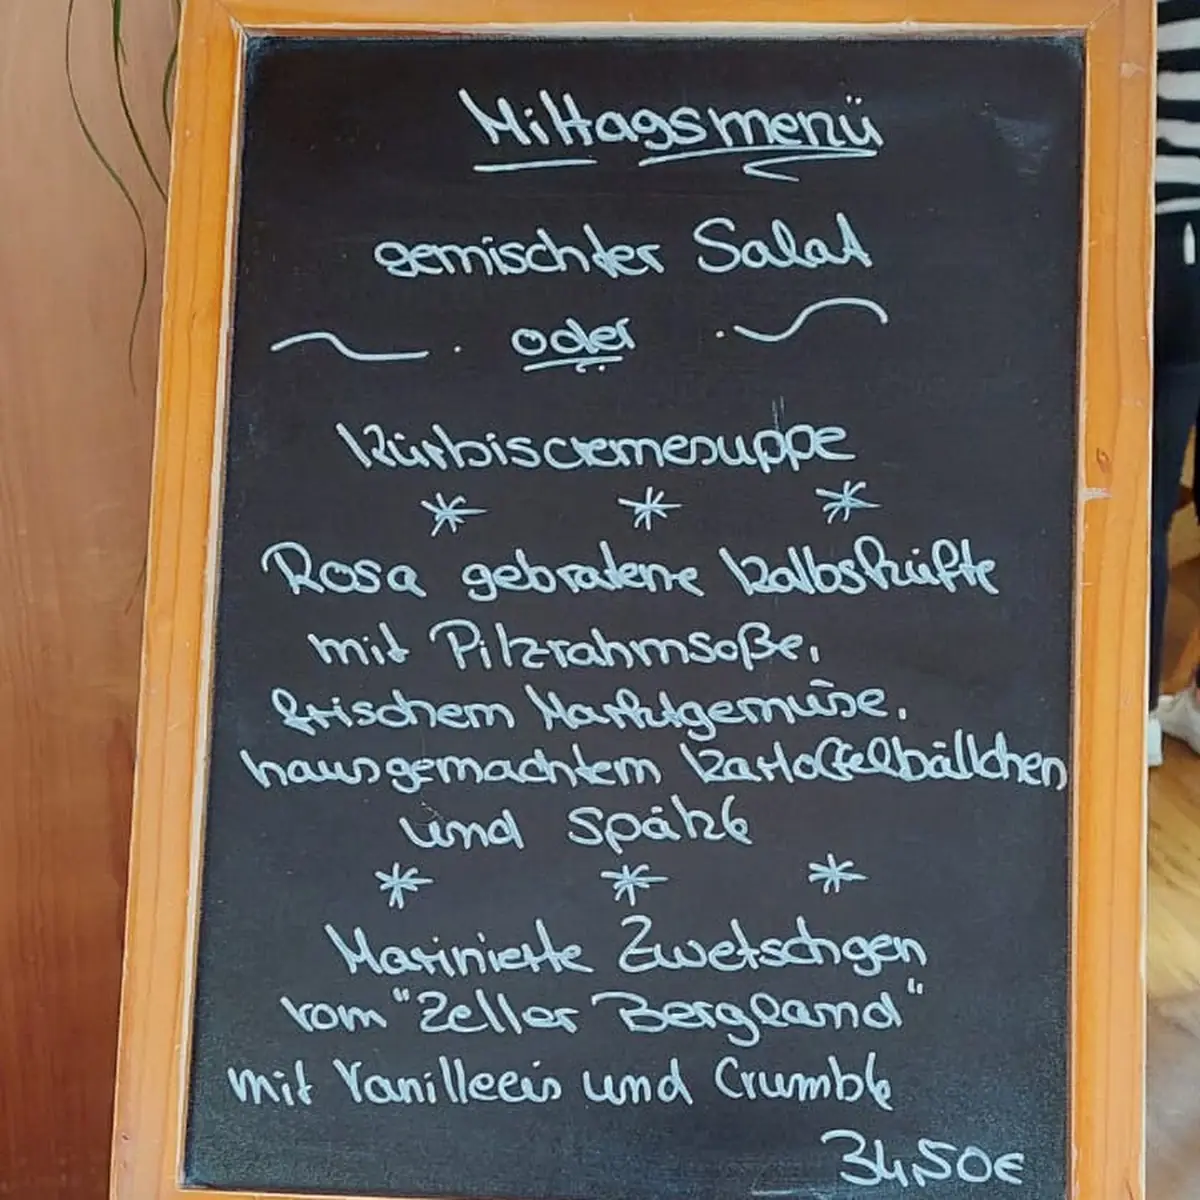 Mittagsmenü
gemischter Salat
oder
Kürbiscremesuppe
Rosa gebratene Kalbshüfte
mit Pilzrahmsoße,
frischem Marktgemüse,
hausgemachtem Kartoffelbällchen
und Spätzle
Marinierte Zwetschgen
vom "Zeller Bergland"
mit Vanilleeis und Crumble
34,50€